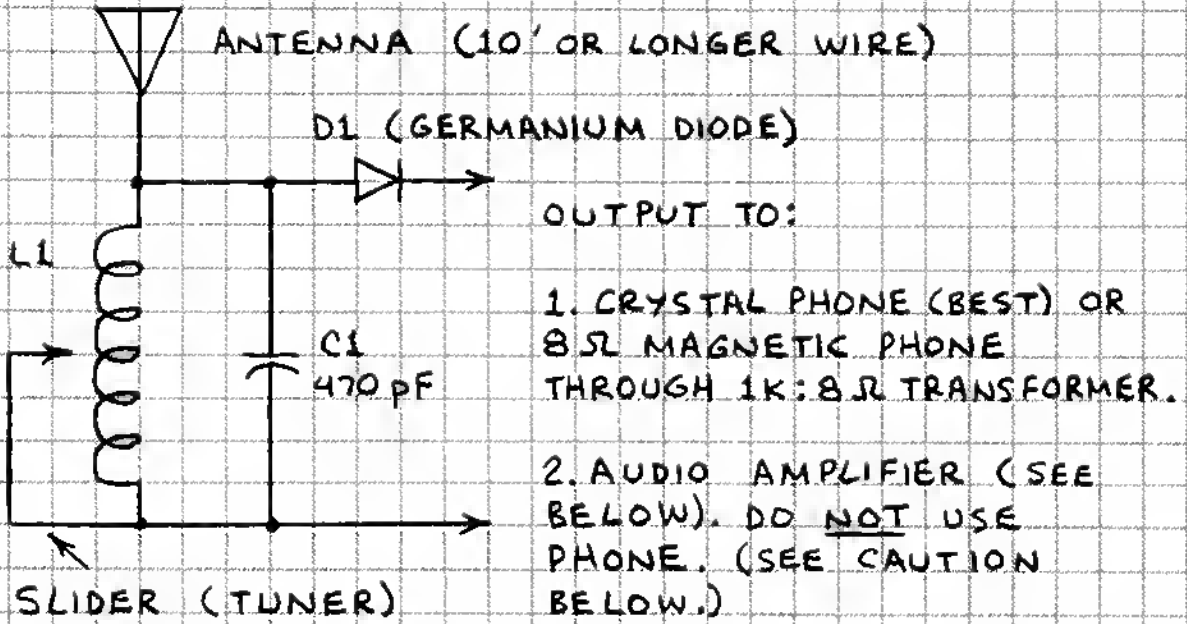 ANTENNA (10' OR LONGER WIRE)
D1 (GERMANIUM DIODE)
OUTPUT TO:
L1
1. CRYSTAL PHONE (BEST) OR
8Ω MAGNETIC PHONE
THROUGH 1K:8Ω TRANSFORMER.
C1
470 pF
2. AUDIO AMPLIFIER (SEE
BELOW). DO NOT USE
PHONE. (SEE CAUTION
BELOW.)
SLIDER (TUNER)